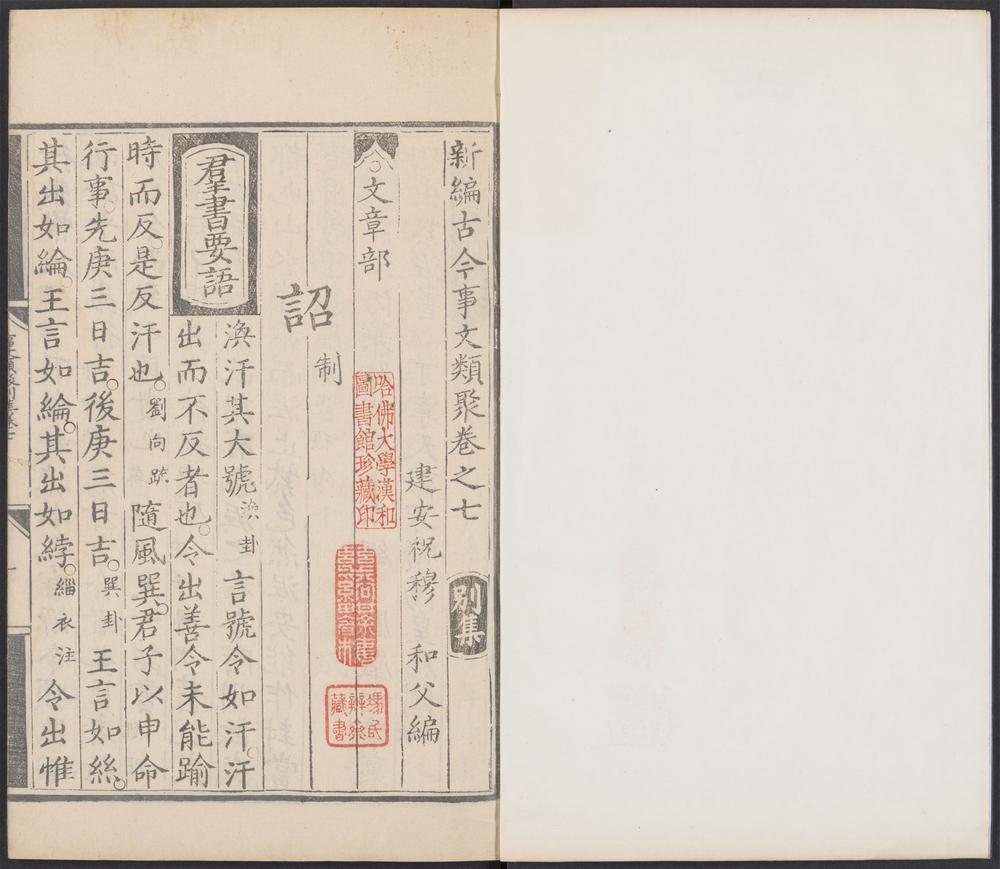 新編古今事文類聚卷之七 別集
建安祝穆 和父編
文章部
詔
制
羣書要語
渙汗其大號渙卦言號令如汗汗
出而不反者也令出善令未能踰
時而反是反汗也劉向䟽隨風巽君子以申命
行事先庚三日吉後庚三日吉巽卦王言如絲
其出如綸王言如綸其出如綍緇衣注令出惟
哈佛大學漢和
圖書館珍藏印
藏書